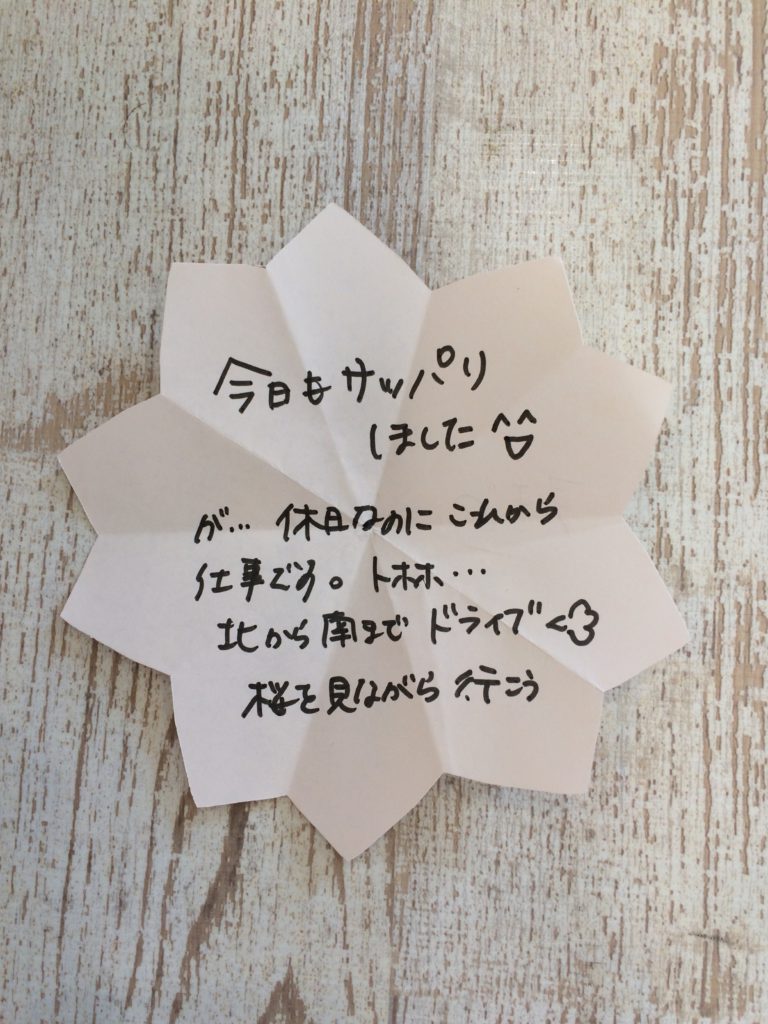 今日もサッパリ
しました ^^
が… 休日なのに これから
仕事です。 トホホ…
北から 南まで ドライブ
桜を見ながら 行こう